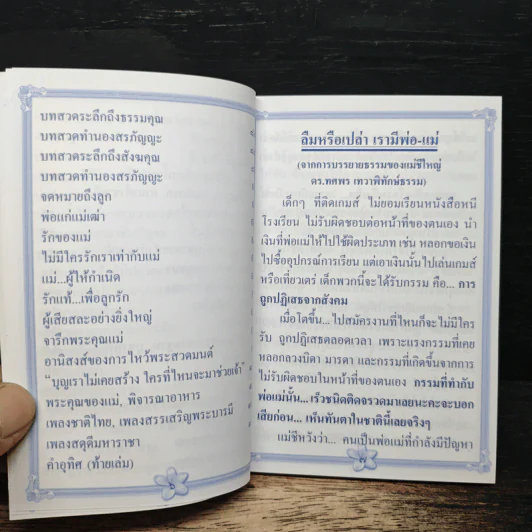 บทสวดระลึกถึงธรรมคุณ
บทสวดทำนองสรภัญญะ
บทสวดระลึกถึงสังฆคุณ
บทสวดทำนองสรภัญญะ
จดหมายถึงลูก
พ่อแก่แม่เฒ่า
รักของแม่
ไม่มีใครรักเราเท่ากับแม่
แม่...ผู้ให้กำเนิด
รักแท้...เพื่อลูกรัก
ผู้เสียสละอย่างยิ่งใหญ่
จารึกพระคุณแม่
อานิสงส์ของการไหว้พระสวดมนต์
“บุญเราไม่เคยสร้าง ใครที่ไหนจะมาช่วยเจ้า”
พระคุณของแม่, พิจารณาอาหาร
เพลงชาติไทย, เพลงสรรเสริญพระบารมี
เพลงสดุดีมหาราชา
คำอุทิศ (ท้ายเล่ม)
ลืมหรือเปล่า เรามีพ่อ-แม่
(จากการบรรยายธรรมของแม่ชีใหญ่
ดร.ทศพร เทวาพิทักษ์ธรรม)
เด็กๆ ที่ติดเกมส์ ไม่ยอมเรียนหนังสือหนี
โรงเรียน ไม่รับผิดชอบต่อหน้าที่ของตนเอง นำ
เงินที่พ่อแม่ให้ไปใช้ผิดประเภท เช่น หลอกขอเงิน
ไปซื้ออุปกรณ์การเรียน แต่เอาเงินนั้นไปเล่นเกมส์
หรือเที่ยวเตร่ เด็กพวกนี้จะได้รับกรรม คือ... การ
ถูกปฏิเสธจากสังคม
เมื่อโตขึ้น... ไปสมัครงานที่ไหนก็จะไม่มีใคร
รับ ถูกปฏิเสธตลอดเวลา เพราะแรงกรรมที่เคย
หลอกลวงบิดา มารดา และกรรมที่เกิดขึ้นจากการ
ไม่รับผิดชอบในหน้าที่ของตนเอง กรรมที่ทำกับ
พ่อแม่นั้น... เร็วชนิดติดจรวดมาเลยนะคะจะบอก
เสียก่อน... เห็นทันตาในชาตินี้เลยจริงๆ
แม่ชีหวังว่า... คนเป็นพ่อแม่ที่กำลังมีปัญหา